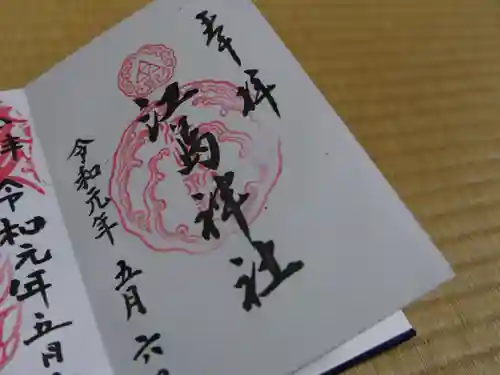 奉拝
江島神社
令和元年
五月六
令和元年五月